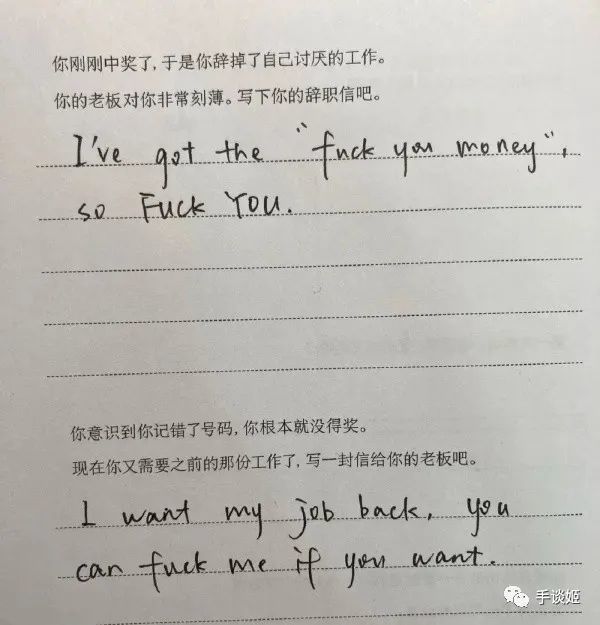 你刚刚中奖了,于是你辞掉了自己讨厌的工作。
你的老板对你非常刻薄。写下你的辞职信吧。
I've got the "fuck you money",
so FUCK YOU.
你意识到你记错了号码,你根本就没得奖。
现在你又需要之前的那份工作了,写一封信给你的老板吧。
I want my job back, you
can fuck me if you want.
手谈姬